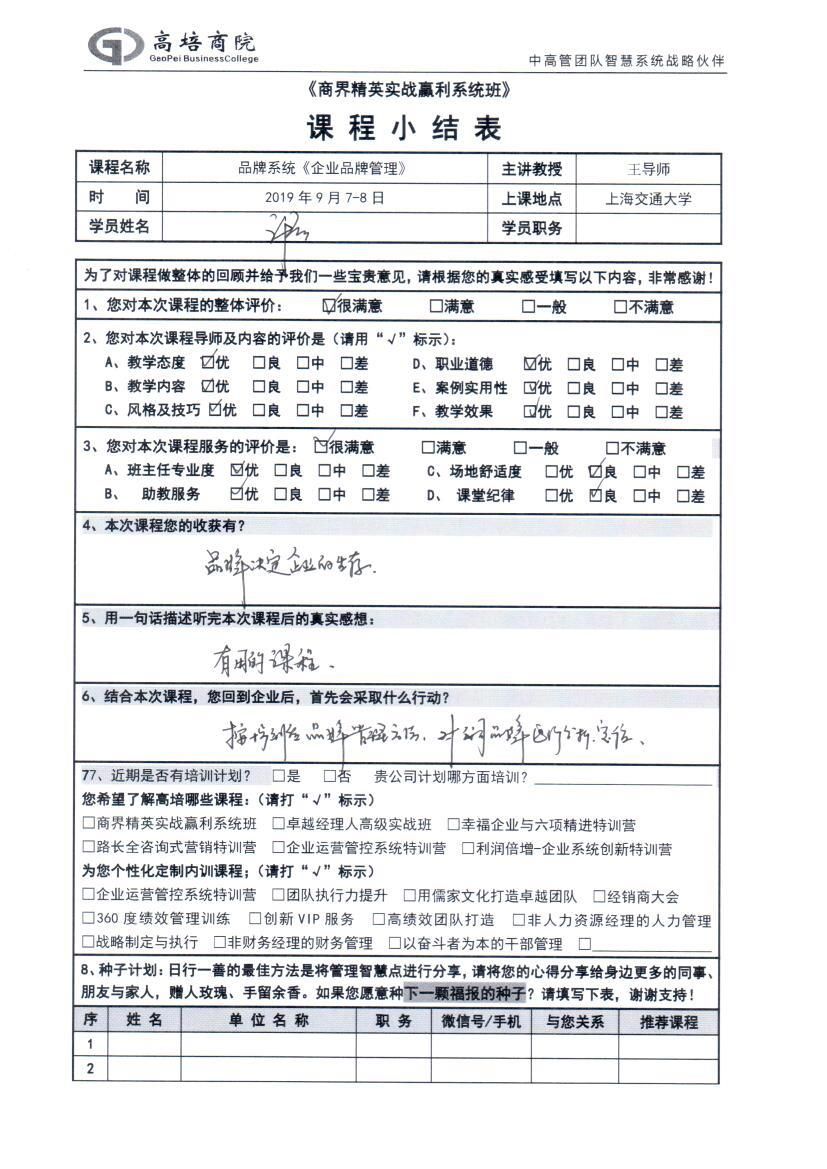 高培商院
GaoPei BusinessCollege
中高管团队智慧系统战略伙伴
《商界精英实战赢利系统班》
课程小结表
课程名称 品牌系统《企业品牌管理》 主讲教授 王导师
时 间 2019年9月7-8日 上课地点 上海交通大学
学员姓名 学员职务
为了对课程做整体的回顾并给予我们一些宝贵意见，请根据您的真实感受填写以下内容，非常感谢！
1、您对本次课程的整体评价： ☑很满意 □满意 □一般 □不满意
2、您对本次课程导师及内容的评价是（请用“√”标示）：
A、教学态度 ☑优 □良 □中 □差 D、职业道德 ☑优 □良 □中 □差
B、教学内容 ☑优 □良 □中 □差 E、案例实用性 ☑优 □良 □中 □差
C、风格及技巧 ☑优 □良 □中 □差 F、教学效果 ☑优 □良 □中 □差
3、您对本次课程服务的评价是： ☑很满意 □满意 □一般 □不满意
A、班主任专业度 ☑优 □良 □中 □差 C、场地舒适度 □优 ☑良 □中 □差
B、 助教服务 ☑优 □良 □中 □差 D、 课堂纪律 □优 ☑良 □中 □差
4、本次课程您的收获有？
品牌决定企业的生存.
5、用一句话描述听完本次课程后的真实感想：
有用的课程、
6、结合本次课程，您回到企业后，首先会采取什么行动？
品牌管理方法、对 品牌进行分析、定位、
77、近期是否有培训计划？ □是 □否 贵公司计划哪方面培训？
您希望了解高培哪些课程：（请打“√”标示）
□商界精英实战赢利系统班 □卓越经理人高级实战班 □幸福企业与六项精进特训营
□路长全咨询式营销特训营 □企业运营管控系统特训营 □利润倍增-企业系统创新特训营
为您个性化定制内训课程；（请打“√”标示）
□企业运营管控系统特训营 □团队执行力提升 □用儒家文化打造卓越团队 □经销商大会
□360度绩效管理训练 □创新VIP服务 □高绩效团队打造 □非人力资源经理的人力管理
□战略制定与执行 □非财务经理的财务管理 □以奋斗者为本的干部管理 □
8、种子计划：日行一善的最佳方法是将管理智慧点进行分享，请将您的心得分享给身边更多的同事、
朋友与家人，赠人玫瑰、手留余香。如果您愿意种下一颗福报的种子？请填写下表，谢谢支持！
序 姓名 单位名称 职务 微信号/手机 与您关系 推荐课程
1
2